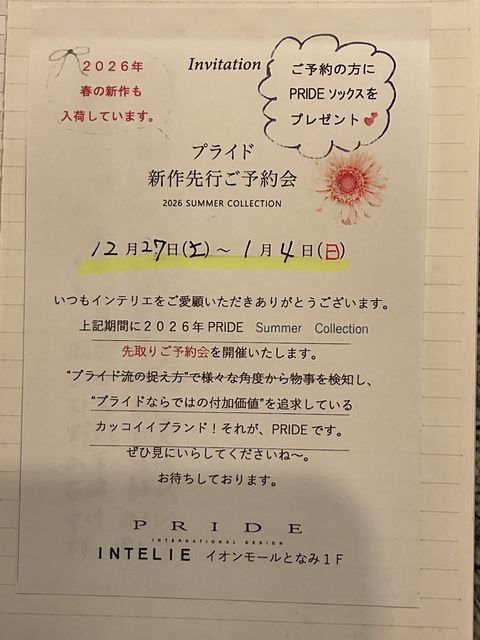 2026年
春の新作も
入荷しています。
Invitation
ご予約の方に
PRIDEソックスを
プレゼント💕
プライド
新作先行ご予約会
2026 SUMMER COLLECTION
12月27日(土)～1月4日(日)
いつもインテリエをご愛顧いただきありがとうございます。
上記期間に2026年PRIDE Summer Collection
先取りご予約会を開催いたします。
“プライド流の捉え方”で様々な角度から物事を検知し、
“プライドならではの付加価値”を追求している
カッコイイブランド！それが、PRIDEです。
ぜひ見にいらしてくださいね～。
お待ちしております。
PRIDE
INTERNATIONAL DESIGN
INTELIE イオンモールとなみ1F